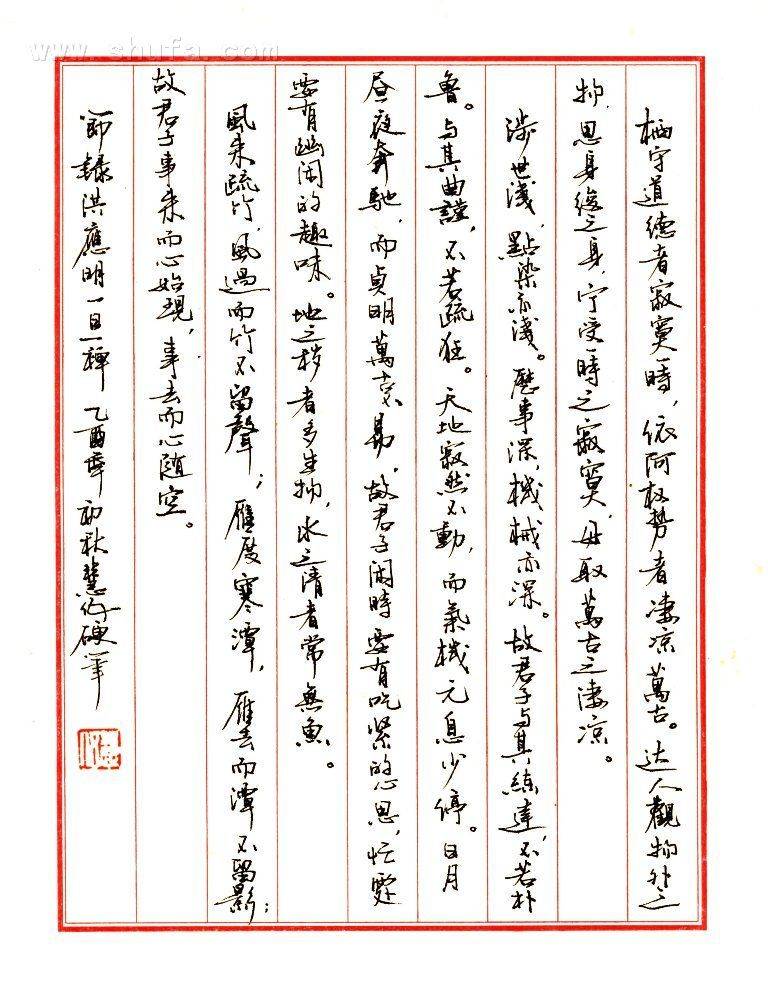 www.shufa.com
栖守道德者寂寞一時,依阿权势者凄凉萬古。达人觀物外之
物,思身後之身,宁受一時之寂寞,毋取萬古之凄凉。
涉世淺,點染亦淺。歷事深,機械亦深。故君子与其練達,不若朴
魯。与其曲謹,不若疏狂。天地寂然不動,而氣機元息少停。日月
昼夜奔馳,而貞明萬古不易。故君子闲時要有吃紧的心思,忙處
要有幽闲的趣味。地之秽者多生物,水之清者常無魚。
風来疏竹,風過而竹不留聲;雁度寒潭,雁去而潭不留影;
故君子事来而心始現,事去而心随空。
節録洪應明一旦禅 乙酉年初秋慧 硬笔